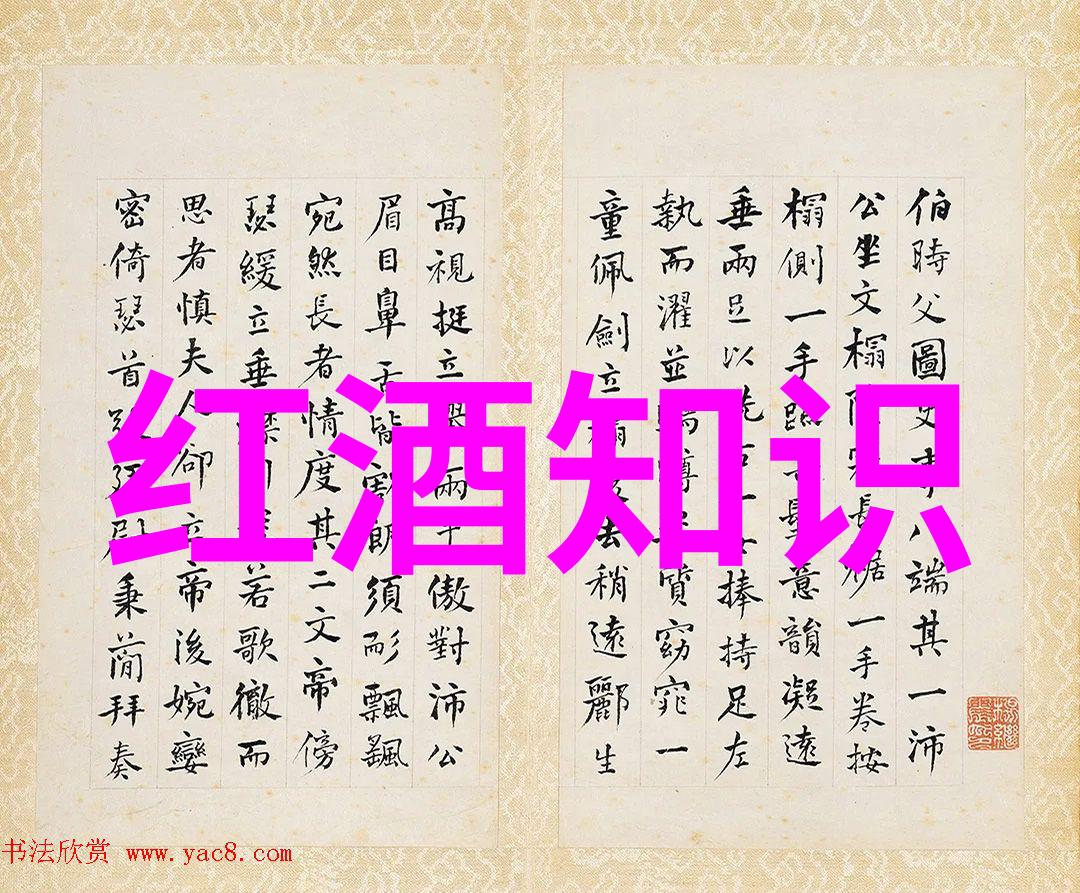 伯時父圖文事八端其一沛
公坐文榻隆準長裾一手卷按
榻側一手踞 髭髯意韻凝遠
垂兩足以洗 一女捧持足左
執而濯並 質窈窕一
童佩劍立榻 去稍遠酈生
高視挺立 兩 傲對沛公
眉目鼻舌皆 須髟飄飄
宛然長者情度其二文帝傍
瑟緩立垂 若歌徹而
思者慎夫人卻立帝後婉孌
密倚瑟首 尉秉蕳拜奏
红酒知识
书法欣赏 www.yac8.com